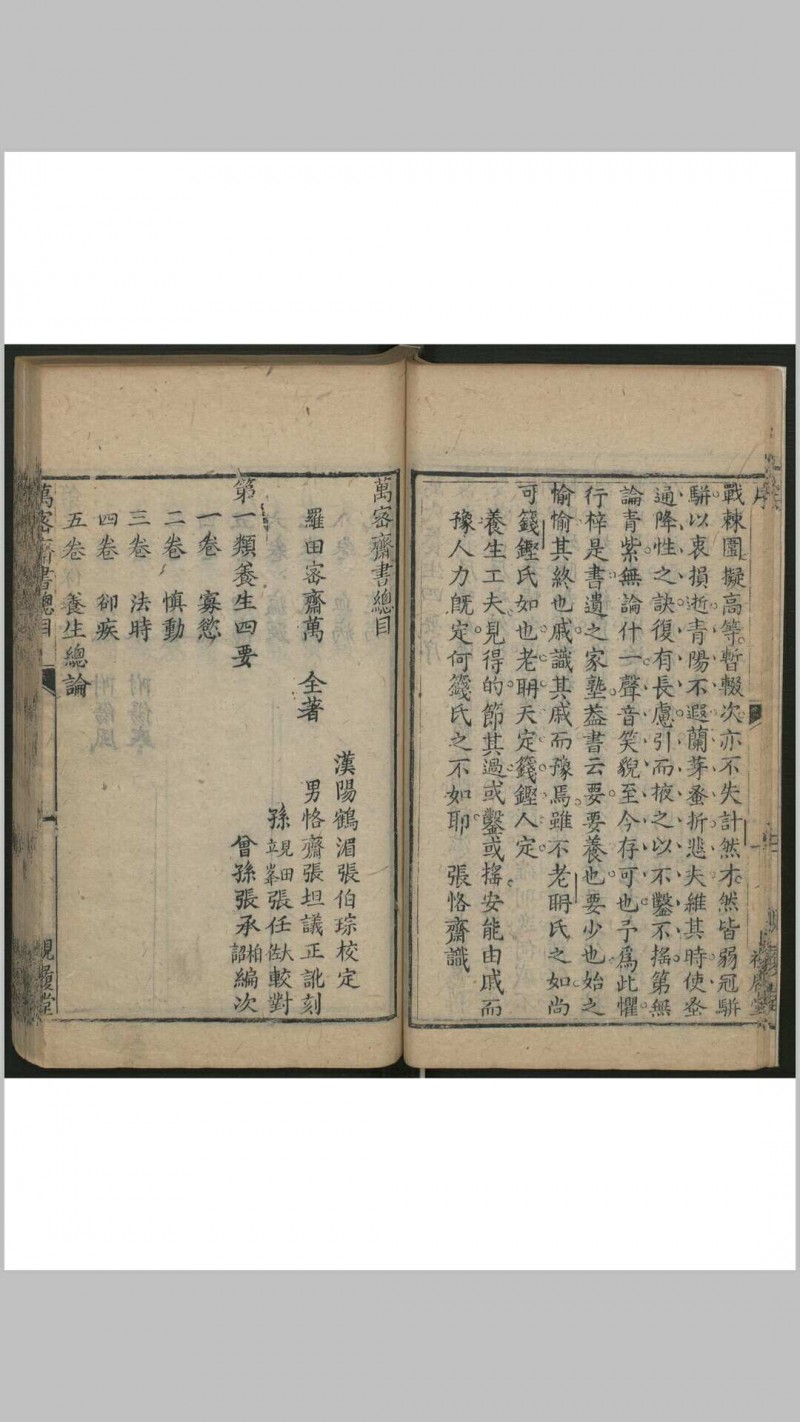 序
戰棘圍擬高等暫輟次亦不失計然才然皆弱冠駢
駢以衷損逝青陽不遐蘭芽蚤折悲夫維其時使蚤
通降性之訣復有長慮引而掖之以不鑿不搖第無
論青紫無論什一聲音笑貌至今存可也予爲此懼
行梓是書遺之家塾葢書云要要養也要少也始之
愉愉其終也戚識其戚而豫焉雖不老聃氏之如尚
可籛鏗氏如也老聃天定籛鏗人定
養生工夫見得的節其過或鑿或搖安能由戚而
豫人力旣定何籛氏之不如耶　張恪齋識
萬密齋書總目
羅田密齋萬　全著
漢陽鶴湄張伯琮校定
男恪齋張坦議正訛刻
孫見田立峯張任大佐較對
曾孫張承柏詔編次
第一類養生四要
一卷　寡慾
二卷　慎動
三卷　法時
四卷　卻疾
五卷　養生總論
萬密齋書總目　一　視履堂